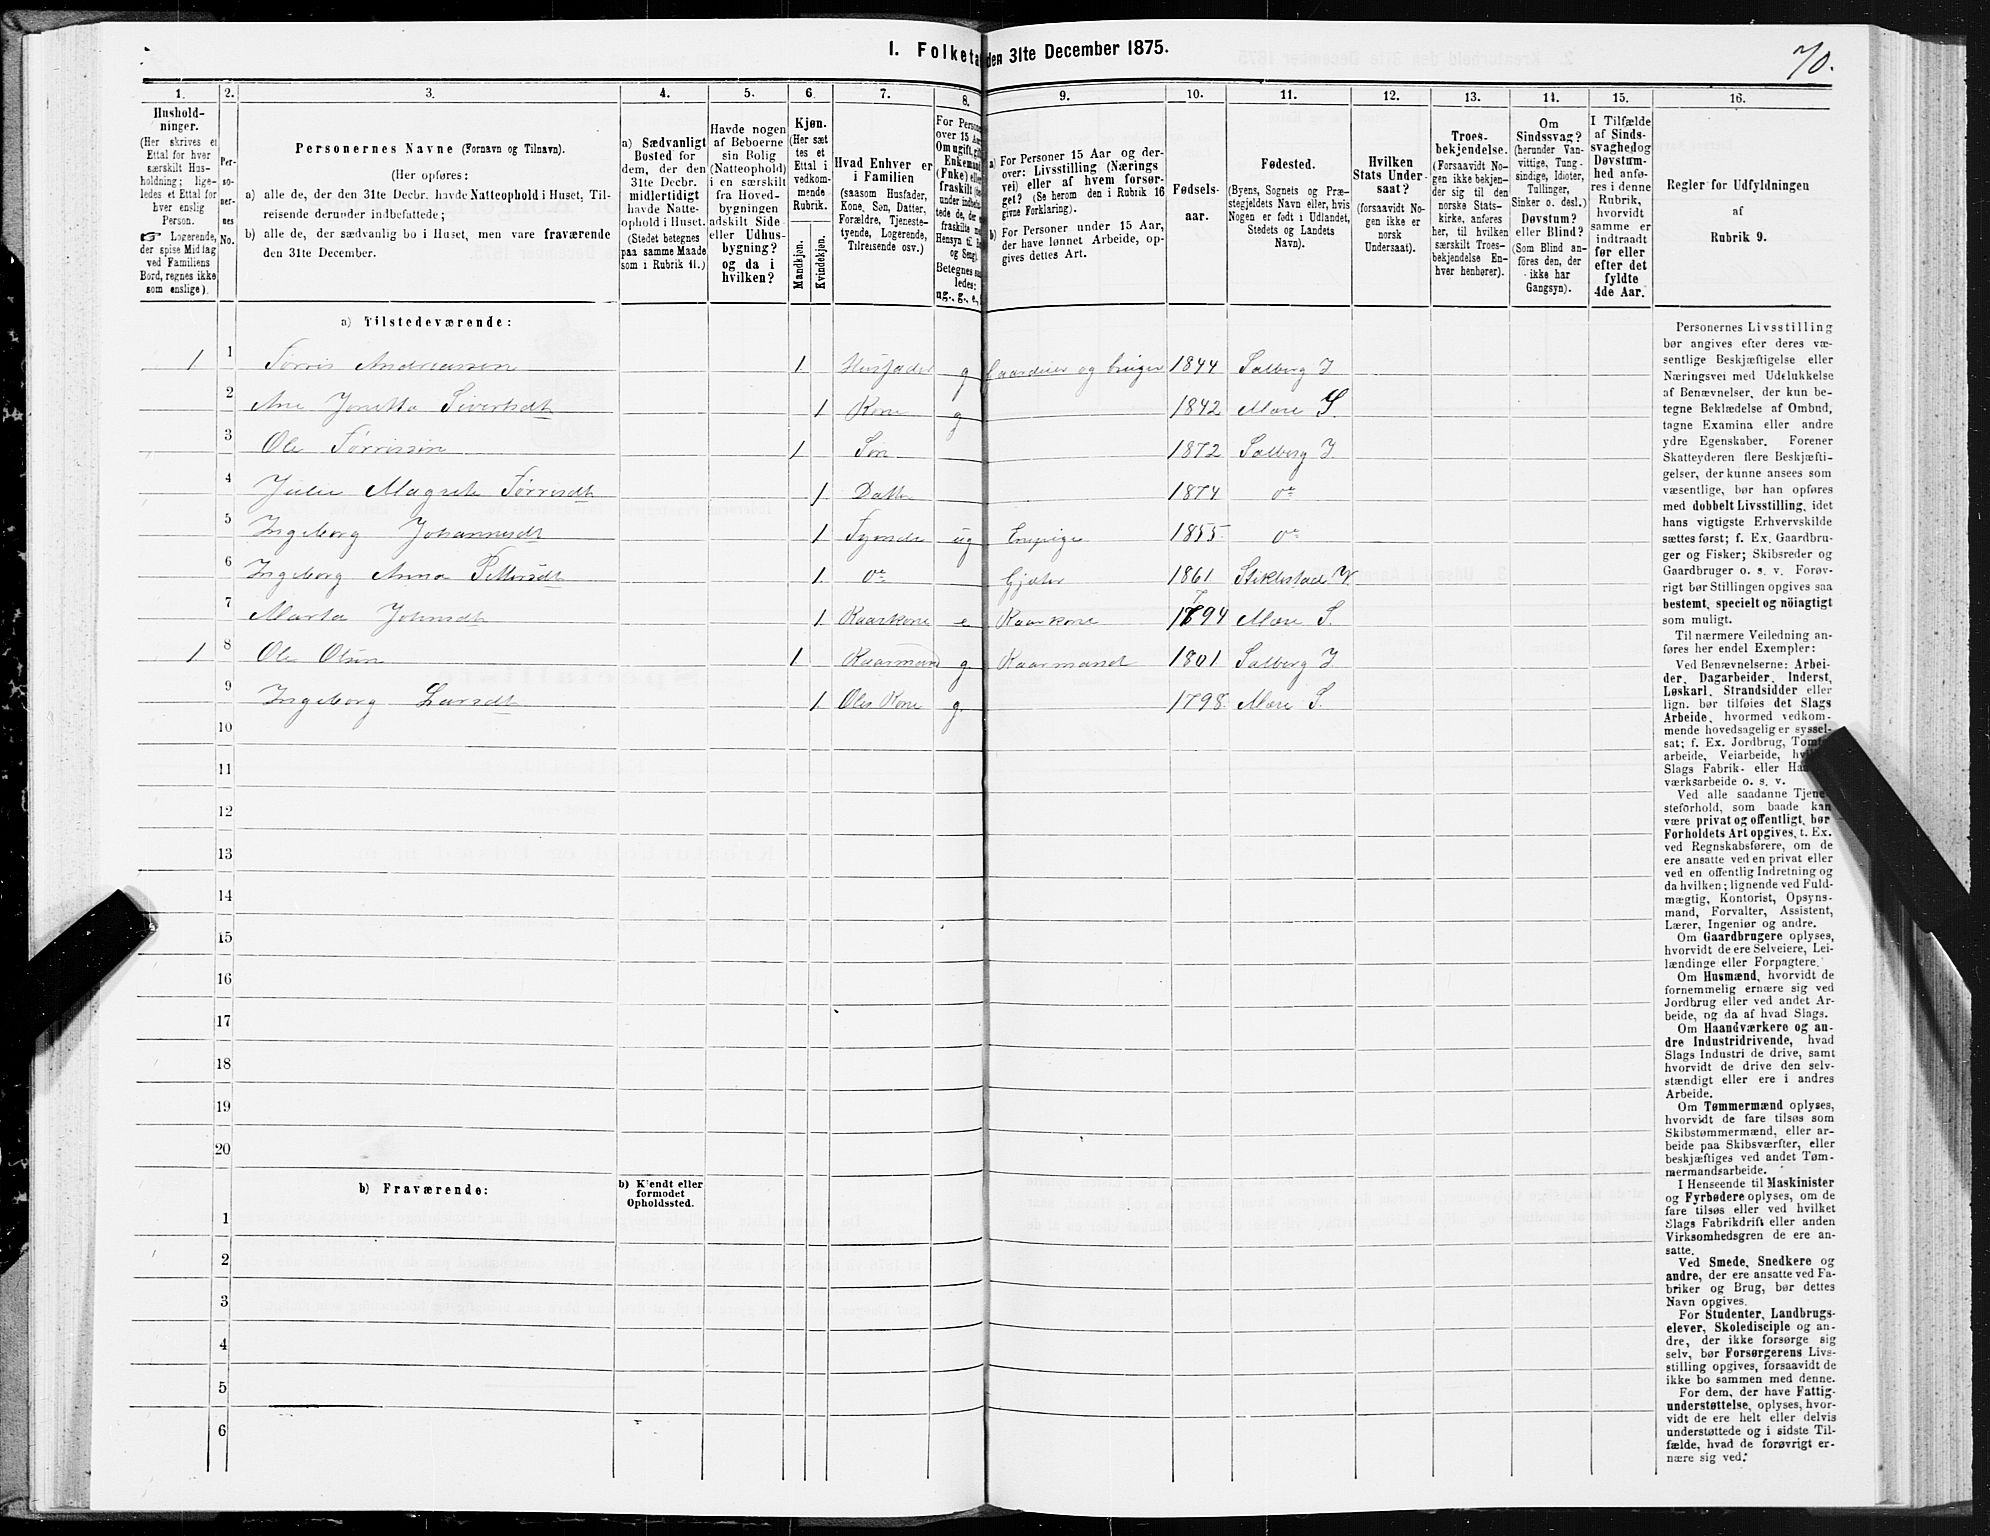 I. Folketa den 31te December 1875.
70.
1. 2. 3. 4. 5. 6. 7. 8. 9. 10. 11. 12. 13. 14. 15. 16.
Hushold-
ninger.
(Her skrives et
Ettal for hver
særskilt Hus-
holdning; lige-
ledes et Ettal for
hver enslig
Person.
☞ Logerende,
der spise Middag
ved Familiens
Bord, regnes ikke
som enslige).
Per-
so-
ner-
nes
No.
Personernes Navne (Fornavn og Tilnavn).
(Her opføres:
a) alle de, der den 31te Decbr. havde Natteophold i Huset, Til-
reisende derunder indbefattede;
b) alle de, der sædvanlig bo i Huset, men vare fraværende
den 31te December.
a) Sædvanligt
Bosted for
dem, der den
31te Decbr.
midlertidigt
havde Natte-
ophold i Huset.
(Stedet betegnes
paa samme Maade
som i Rubrik 11.)
Havde nogen
af Beboerne
sin Bolig
(Natteophold)
i en særskilt
fra Hoved-
bygningen
adskilt Side
eller Udhus-
bygning?
og da i
hvilken?
Kjøn.
(Her sæt
tes et
Ettal i
vedkom-
mende
Rubrik.
Mandkjøn.
Kvindekjøn.
Hvad Enhver er
i Familien
(saasom Husfader,
Kone, Søn, Datter,
Forældre, Tjeneste-
tyende, Logerende,
Tilreisende osv.)
For Persone
over 15 Aar
Om ugift, gift
Enkemand
(Enke) eller
fraskilt
under indbefat-
tede de, der
fraskilte
Hensyn til
og Seng).
Betegnes saa
ledes:
ug., g., e.,
a) For Personer 15 Aar og der-
over: Livsstilling (Nærings
vei) eller af hvem forsør-
get? (Se herom den i Rubrik 16
givne Forklaring).
b) For Personer under 15 Aar,
der have lønnet Arbeide, op-
gives dettes Art.
Fødsels-
aar.
Fødested.
(Byens, Sognets og Præ-
stegjeldets Navn eller, hvis
Nogen er født i Udlandet,
Stedets og Landets
Navn).
Hvilken
Stats Under-
saat?
(forsaavidt No-
gen ikke er
norsk
Undersaat).
Troes-
bekjendelse.
(Forsaavidt No-
gen ikke bekjen-
der sig til den
norske Stats-
kirke, anføres
her, til hvilken
særskilt Troes-
bekjendelse En-
hver henhører).
Om
Sindssvag?
(herunder Van-
vittige, Tung-
sindige, Idioter,
Tullinger,
Sinker o. desl.)
Døvstum?
eller Blind?
(Som Blind an-
føres den, der
ikke har
Gangsyn).
I Tilfælde
af Sinds-
svaghed og
Døvstum-
hed anfø-
res i denne
Rubrik,
hvorvidt
samme er
indtraadt
før eller
efter det
fyldte
4de Aar.
Regler for Udfyldningen
af
Rubrik 9.
a) Tilstedeværende:
1 1 Tørris Andreassen 1 Husfader g Gaardeier og bruger 1844 Salberg Y
2 Ane Jonetta Sivertsdt 1 Kone g 1842 Mære S.
3 Ole Tørrissen 1 Søn 1872 Salberg Y.
4 Julie Magrete Tørrisdt 1 Datter 1874 do
5 Ingeborg Johannesdt 1 Tjende ug 1855 do
6 Ingeborg Anna Pettersdt 1 do Gjæter 1861 Stiklestad V
7 Marta Johnsdt 1 Kaarkone e Kaarkone 1794 Mære S.
1 8 Ole Olsen 1 Kaarmand g Kaarmand 1801 Salberg Y
9 Ingeborg Larsdt 1 Oles Kone g. 1798. Mære S.
10
11
12
13
14
15
16
17
18
19
20
b) Fraværende:
b) Kjendt eller
formodet
Opholdssted.
1
2
3
4
5
6
Personernes Livsstilling
bør angives efter deres væ-
sentlige Beskjæftigelse eller
Næringsvei med Udelukkelse
af Benævnelser, der kun be-
tegne Beklædelse af Ombud,
tagne Examina eller andre
ydre Egenskaber. Forener
Skatteyderen flere Beskjæfti-
gelser, der kunne ansees som
væsentlige, bør han opføres
med dobbelt Livsstilling, idet
hans vigtigste Erhvervskilde
sættes først; f. Ex. Gaardbru-
ger og Fisker; Skibsreder og
Gaardbruger o. s. v. Forøv-
rigt bør Stillingen opgives saa
bestemt, specielt og nöiagtigt
som muligt.
Til nærmere Veiledning an-
føres her endel Exempler:
Ved Benævnelserne: Arbei-
der, Dagarbeider, Inderst,
Løskarl, Strandsidder eller
lign. bør tilføies det Slags
Arbeide, hvormed vedkom-
mende hovedsagelig er syssel-
sat; f. Ex. Jordbrug, Tomte-
arbeide, Veiarbeide, hvilket
Slags Fabrik- eller Haand-
værksarbeide o. s. v.
Ved alle saadanne Tjene-
steforhold, som baade kan
være privat og offentligt, bør
Forholdets Art opgives, t. Ex.
ved Regnskabsførere, om de
ere ansatte ved en privat eller
ved en offentlig Indretning og
da hvilken; lignende ved Fuld-
mægtig, Kontorist, Opsyns-
mand, Forvalter, Assistent,
Lærer, Ingeniør og andre.
Om Gaardbrugere oplyses,
hvorvidt de ere Selveiere, Lei-
lændinge eller Forpagtere.
Om Husmænd, hvorvidt de
fornemmelig ernære sig ved
Jordbrug eller ved andet Ar-
beide, og da af hvad Slags.
Om Haandværkere og an-
dre Industridrivende, hvad
Slags Industri de drive, samt
hvorvidt de drive den selv-
stændigt eller ere i andres
Arbeide.
Om Tømmermænd oplyses,
hvorvidt de fare tilsøs som
Skibstømmermænd, eller ar-
beide paa Skibsværfter, eller
beskjæftiges ved andet Tøm-
mermandsarbeide.
I Henseende til Maskinister
og Fyrbødere oplyses, om de
fare tilsøs eller ved hvilket
Slags Fabrikdrift eller anden
Virksomhedsgren de ere an-
satte.
Ved Smede, Snedkere og
andre, der ere ansatte ved Fa-
briker og Brug, bør dettes
Navn opgives.
For Studenter, Landbrugs-
elever, Skoledisciple og an-
dre, der ikke forsørge sig
selv, bør Forsørgerens Livs-
stilling opgives, forsaavidt de
ikke bo sammen med denne.
For dem, der have Fattig-
understøttelse, oplyses, hvor-
vidt de ere helt eller delvis
understøttede og i sidste Til-
fælde, hvad de forøvrigt er-
nære sig ved.